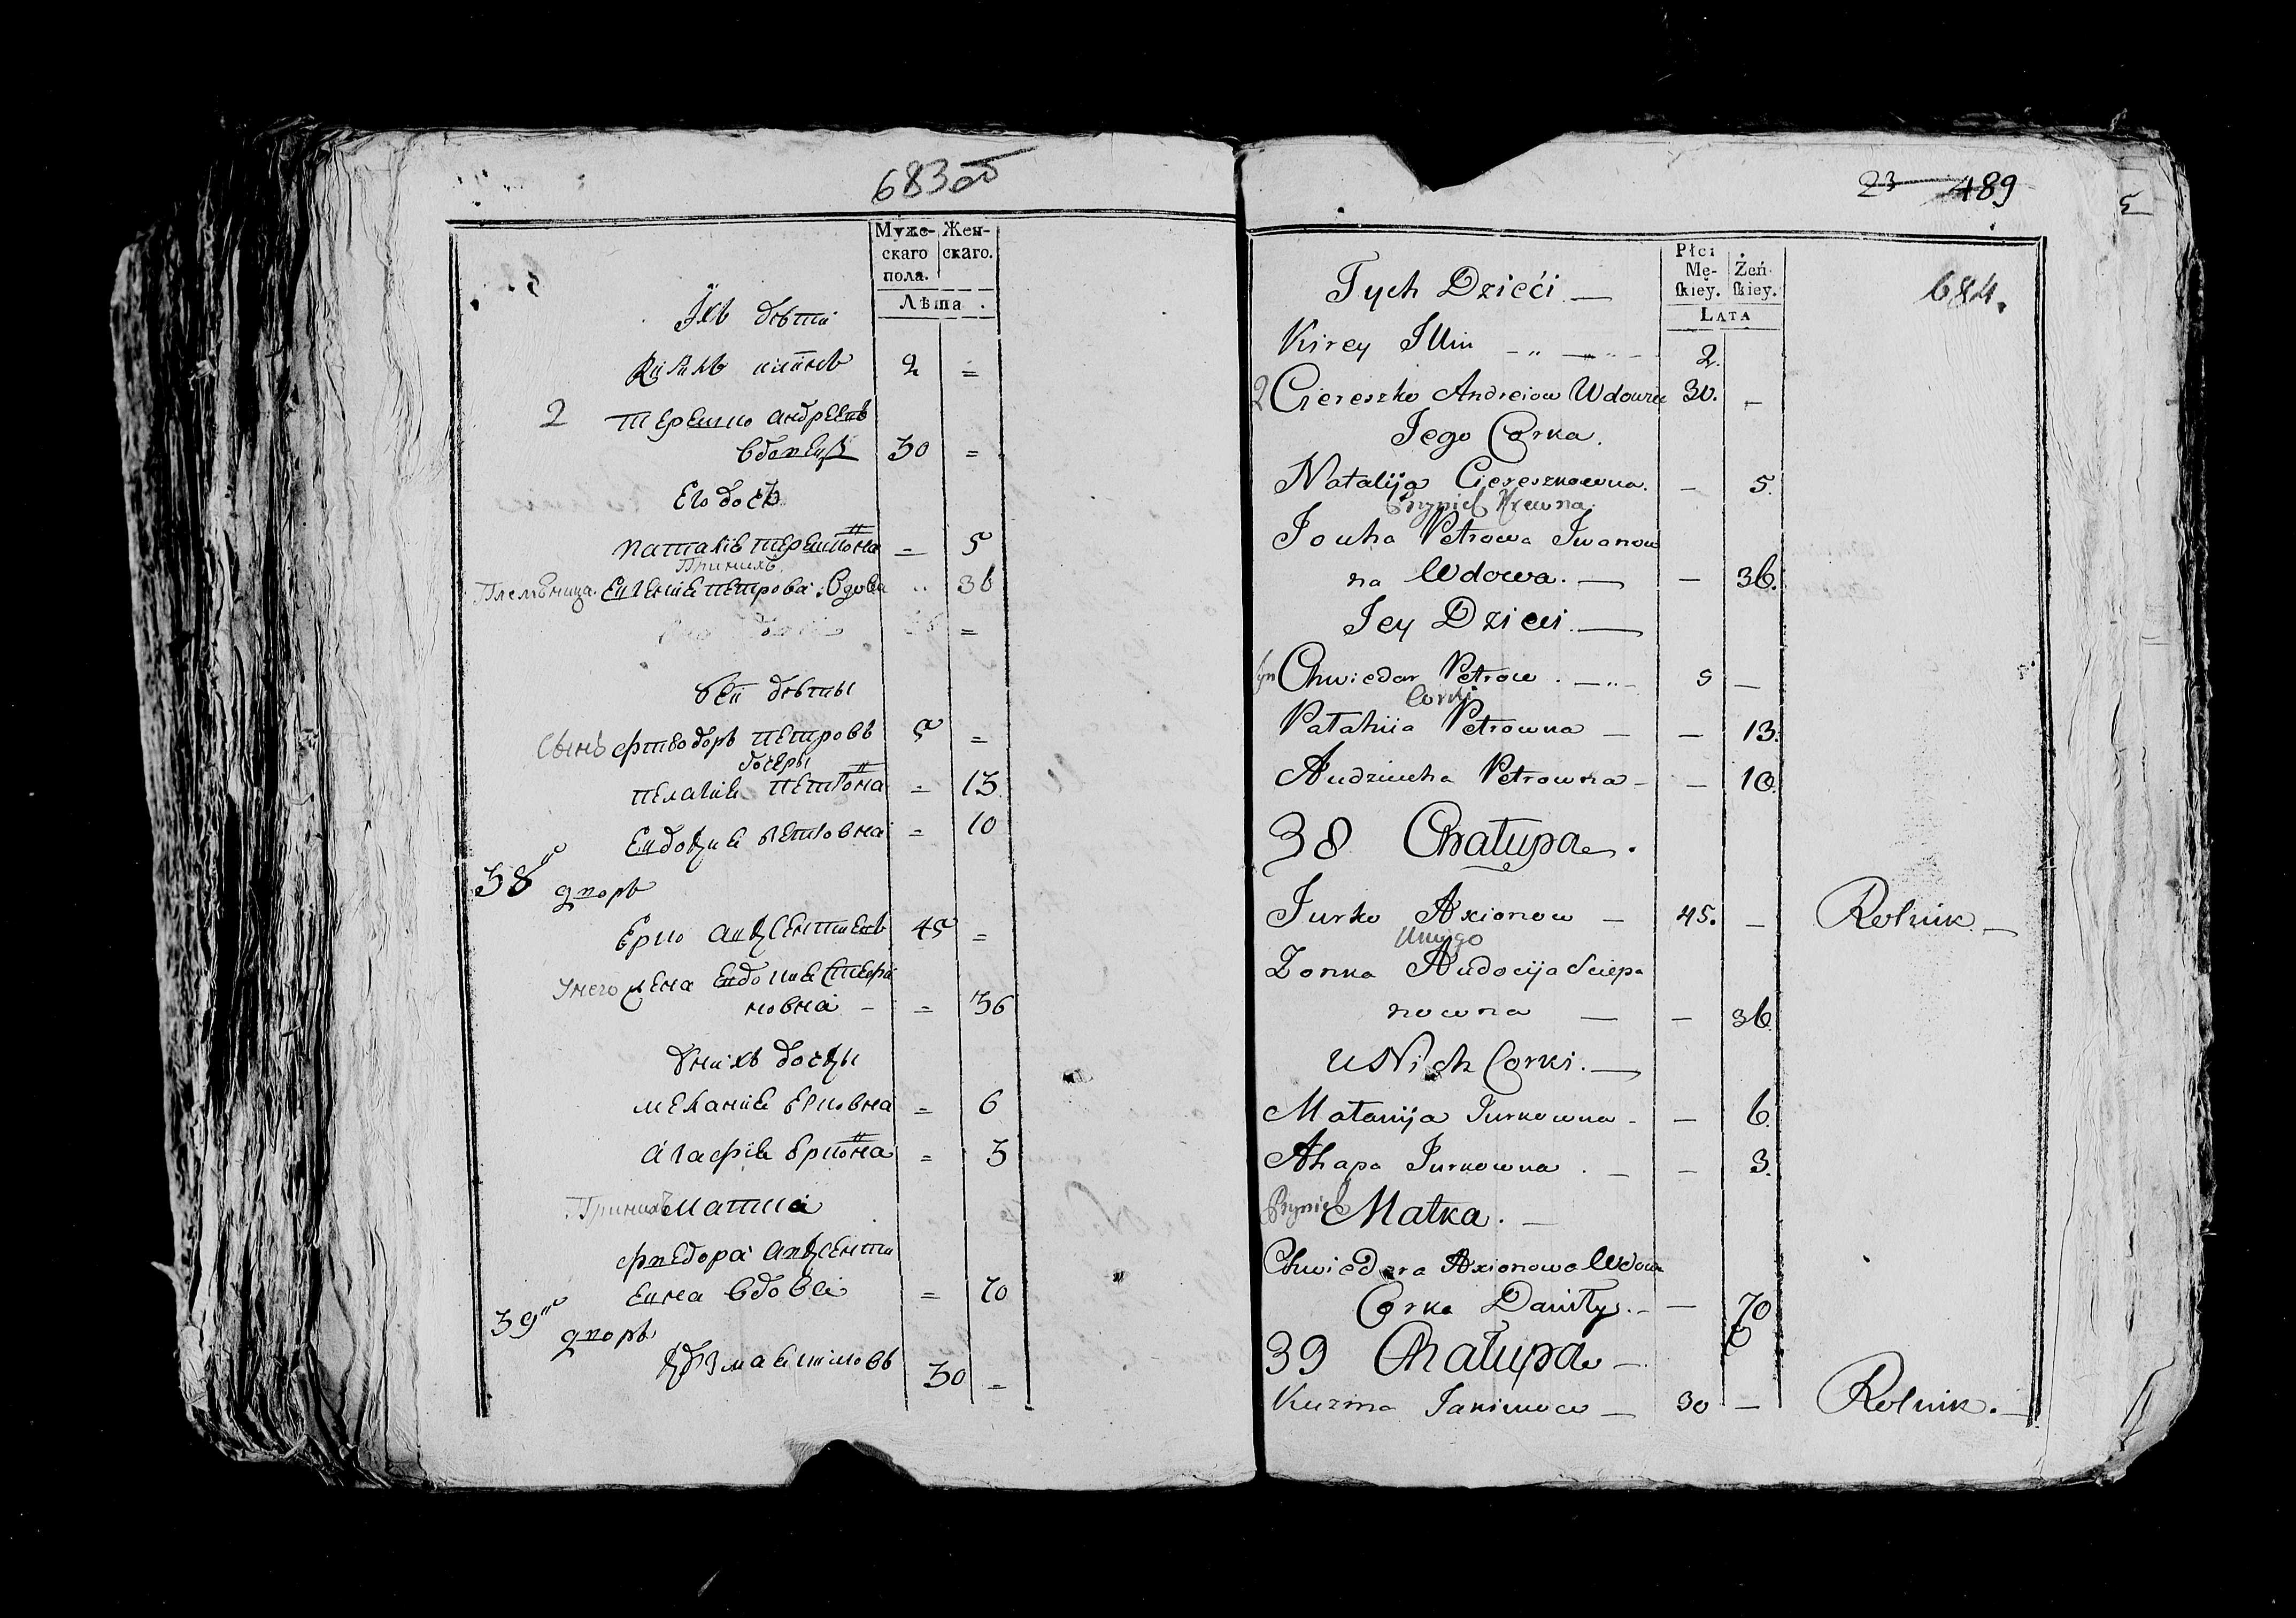 683об
Муже-
скаго
пола.
Жен-
скаго.
Лѣта
Их дѣти
2 =
2 терешко андреевъ
вдовецъ 30 =
Его дочь
наталіе терешковна = 5
Принихъ
Племѣница Евгеніе петрова Вдова 36
=
У Ей дѣтты
Сынъ фтеодоръ петровъ 5 =
дочеры
пелагие петровна = 13
Евдокие петровна = 10
38й дворъ
Ерко авксентиевъ 45 =
Унего жена Евдокие Стефа
новна = 36
Унихъ дочки
мелание Ерковна = 6
Агафие Ерковна = 3
Принихъ матка
фведора авксенти
Евна вдова = 70
39й дворъ
Кузма Екимовъ 30 =
23 489
684.
Płci
Mę-
skiey.
Żeń-
skiey.
LATA
Tych Dzieći
Kirey Illin 2.
2 Ciereszko Andreiow Wdowiec 30. —
Jego Corka.
Natalija Ciereszkowna. — 5.
Przynich Krewna.
Jouha Petrowa Iwanow
na Wdowa. — — 36.
Jey Dzieci. —
syn Chwiedor Petrow . — 5 —
Corki
Pałahija Petrowna — — 13.
Audziucha Petrowna — — 10.
38 Chałupa.
Jurko Axionow — 45. — Rolnik. —
Uniego
Zonka Audocija Sciepa
nowna — — 36
U Nich Corki. —
Małanija Jurkowna - — 6.
Ahapa Jurkowna . — — 3.
Przynich Matka. —
Chwiedora Axionowa Wdowa
Corka Daniły. — — 70
39 Chałupa —
Kuzma Jakimow — 30 — Rolnik. —